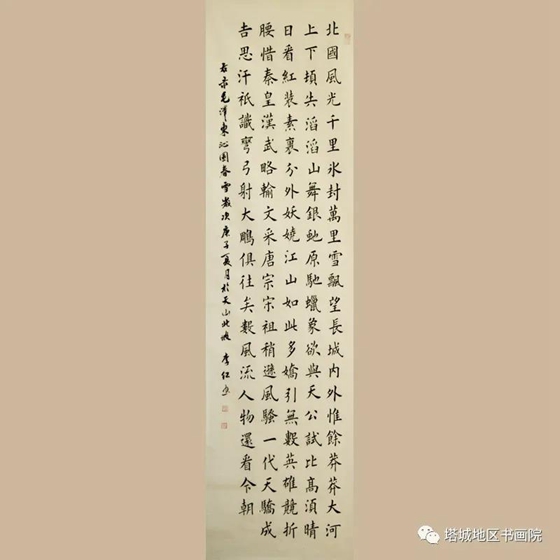 北國風光千里氷封萬里雪飄望長城内外惟餘莽莽大河
上下頓失滔滔山舞銀蛇原馳蠟象欲與天公試比高須晴
日看紅裝素裹分外妖嬈江山如此多嬌引無數英雄競折
腰惜秦皇漢武略輸文采唐宗宋祖稍遜風騷一代天驕成
吉思汗祇識彎弓射大雕俱往矣數風流人物還看今朝
毛澤東沁園春雪歲次庚子夏月於天山北坡 李紅
塔城地区书画院